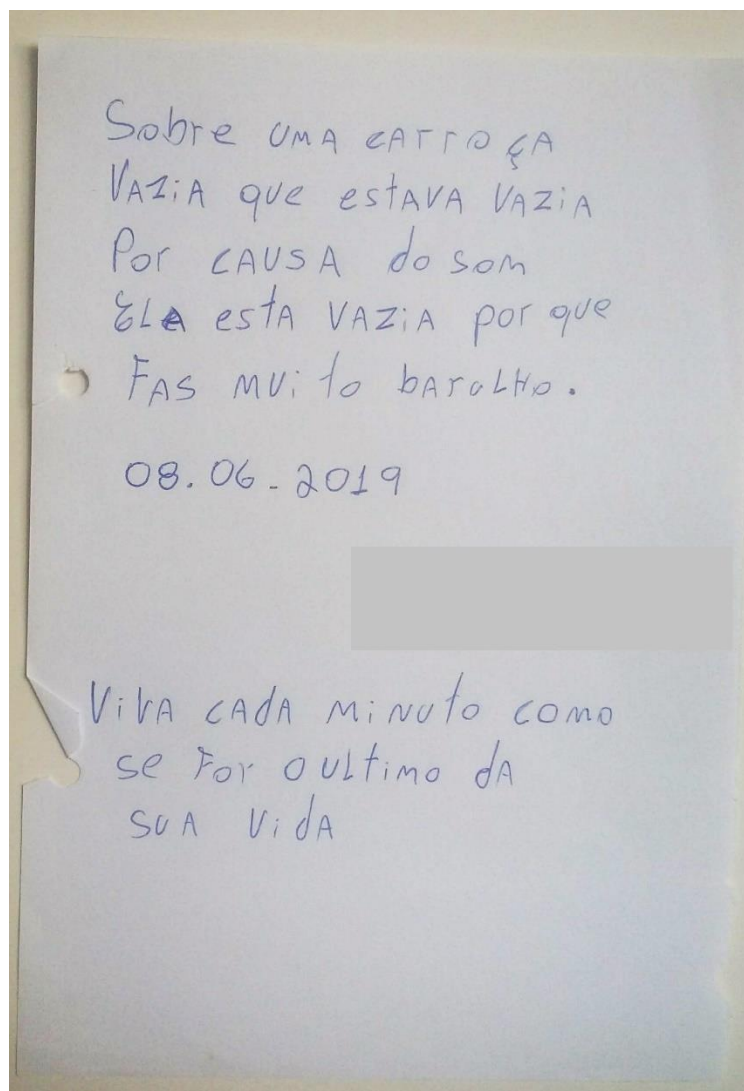 Sobre UMA CARROÇA
VAZiA que estAVA VAZiA
Por CAUSA do som
ELA estA VAZiA por que
FAS MUito bARULHO.
08.06-2019
ViVA CAdA MiNUto como
se For O ULtimo dA
SUA VidA